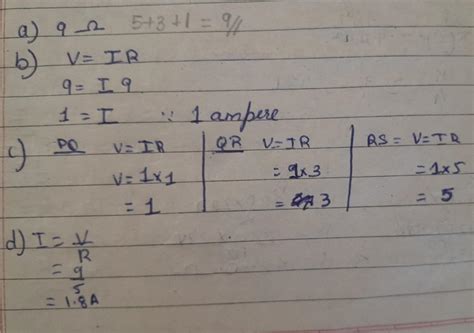 a) 9 Ω 5+3+1 = 9//
b) V = IR
9 = I 9
1 = I ∵ 1 ampere
c) PQ V = IR
V = 1×1
= 1
QR V = IR
= 1×3
= 3
RS = V = IR
= 1×5
= 5
d) I = V/R
= 9/5
= 1.8A